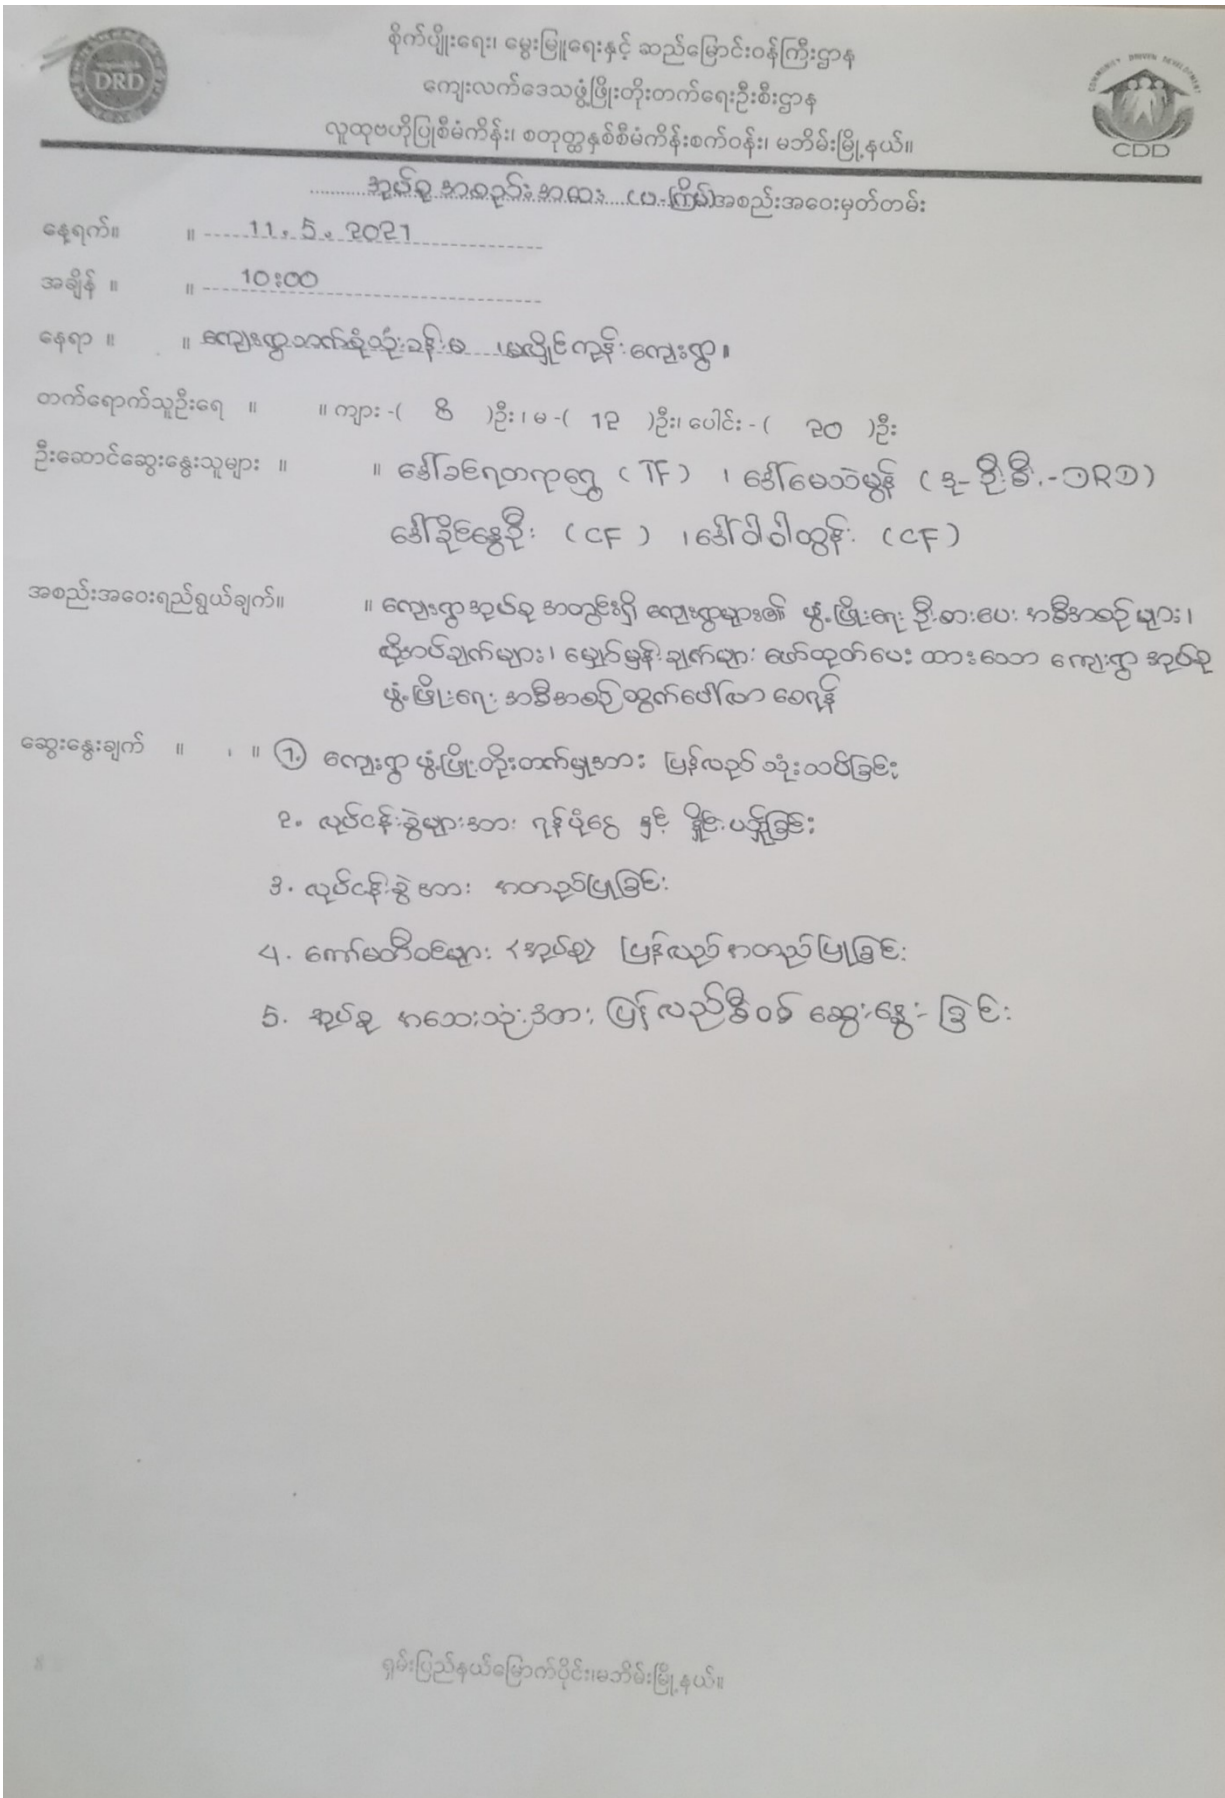 စိုက်ပျိုးရေး၊ မွေးမြူရေးနှင့် ဆည်မြောင်းဝန်ကြီးဌာန
ကျေးလက်ဒေသဖွံ့ဖြိုးတိုးတက်ရေးဦးစီးဌာန
လူထုဗဟိုပြုစီမံကိန်း၊ စတုတ္ထနှစ်စီမံကိန်းစက်ဝန်း၊ မဘိမ်းမြို့နယ်။
DRD
COMMUNITY DRIVEN DEVELOPMENT
CDD
အုပ်စု အစည်းအဝေး (ပ-ကြိမ်) အစည်းအဝေးမှတ်တမ်း
နေ့ရက်။ ။ 11.5.2021
အချိန် ။ ။ 10:00
နေရာ ။ ။ ကျေးရွာ ကုန်းကျေးရွာ။
တက်ရောက်သူဦးရေ ။ ။ ကျား -( 8 )ဦး၊ မ -( 12 )ဦး၊ ပေါင်း - ( 20 )ဦး
ဦးဆောင်ဆွေးနွေးသူများ ။ ။ ဒေါ်ခင်ရတနာရွှေ (TF) ၊ ဒေါ်မေသဲမွန် (ဒု-ဦးစီး-DRD)
ဒေါ်ခိုင်နွေဦး (CF) ၊ ဒေါ်ဝါဝါထွန်း (CF)
အစည်းအဝေးရည်ရွယ်ချက်။ ။ ကျေးရွာအုပ်စု အတွင်းရှိ ကျေးရွာများ၏ ဖွံ့ဖြိုးရေး ဦးစားပေး အစီအစဉ်များ၊
လိုအပ်ချက်များ၊ မျှော်မှန်းချက်များ ဖော်ထုတ်ပေးထားသော ကျေးရွာအုပ်စု
ဖွံ့ဖြိုးရေး အစီအစဉ် ထွက်ပေါ်လာစေရန်
ဆွေးနွေးချက် ။ ။ 1. ကျေးရွာ ဖွံ့ဖြိုးတိုးတက်မှုအား ပြန်လည် သုံးသပ်ခြင်း
2. လုပ်ငန်းခွဲများအား ရန်ပုံငွေ နှင့် ခြင်း
3. လုပ်ငန်းခွဲအား အတည်ပြုခြင်း
4. ကော်မတီဝင်များ <အုပ်စု> ပြန်လည်အတည်ပြုခြင်း
5. အုပ်စု အသေးသုံးအား ပြန်လည်စိစစ် ဆွေးနွေးခြင်း
ရှမ်းပြည်နယ်မြောက်ပိုင်း၊မဘိမ်းမြို့နယ်။